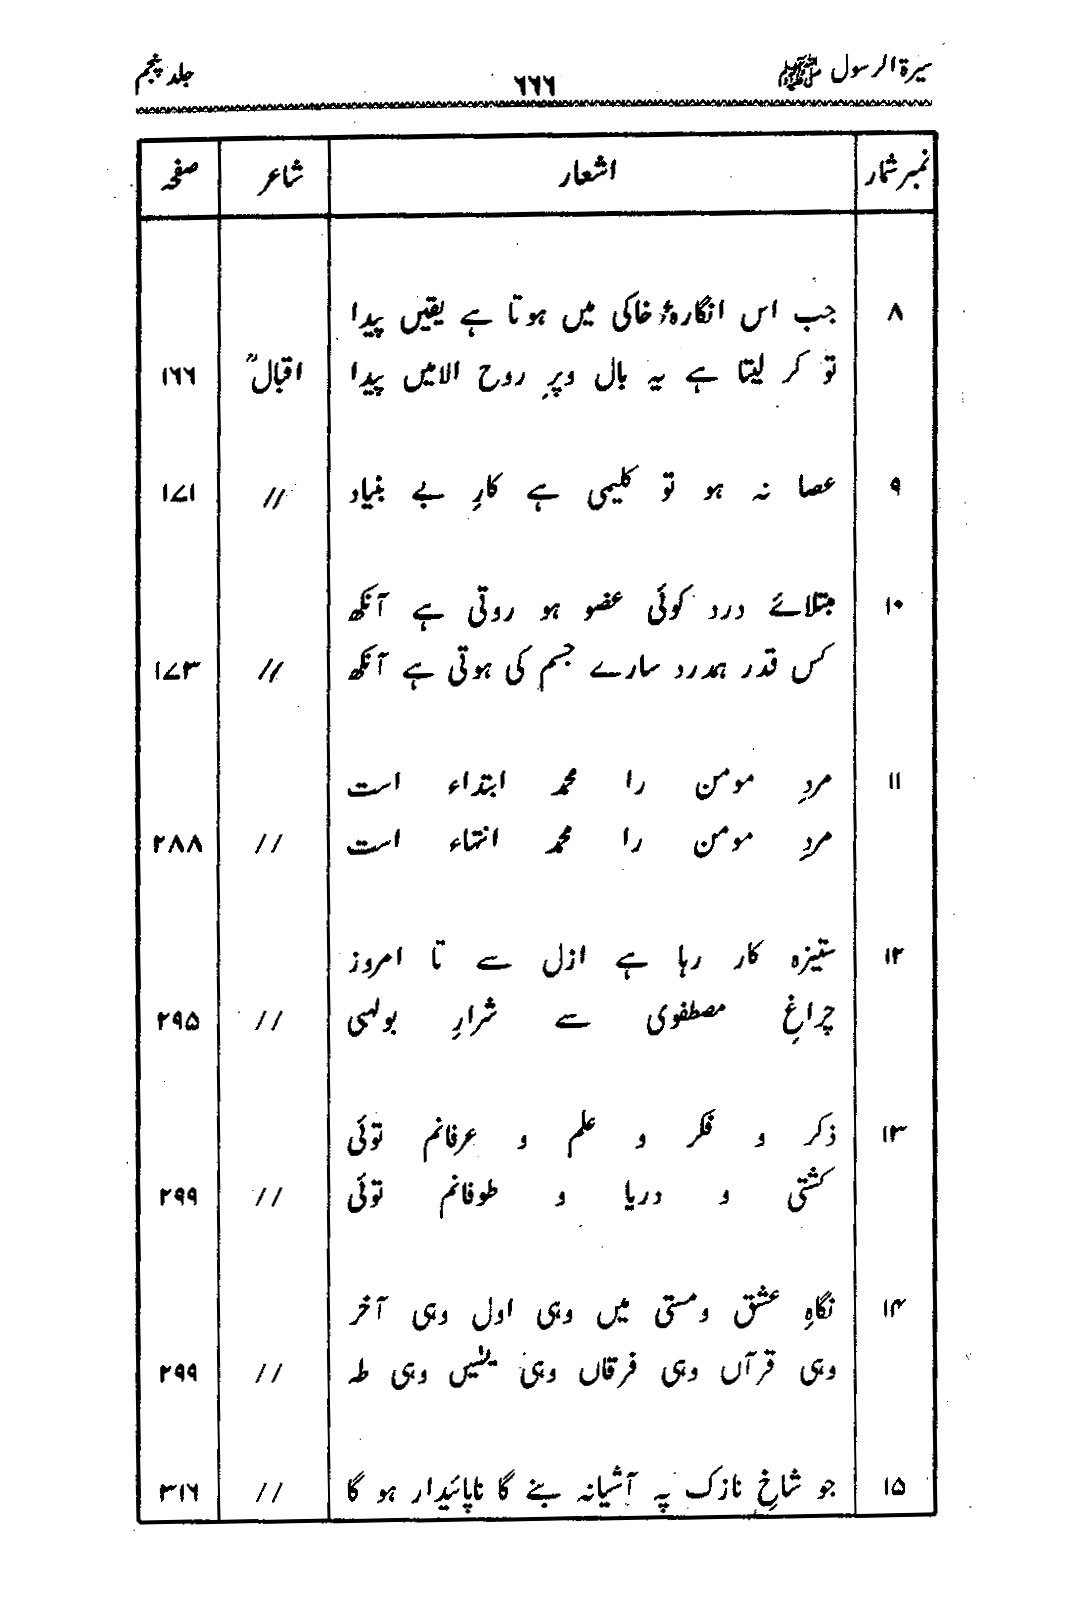 سیرۃ الرسول ﷺ ۶۶۶ جلد پنجم
نمبر شمار اشعار شاعر صفحہ
۸ جب اس انگارۂ خاکی میں ہوتا ہے یقیں پیدا
تو کر لیتا ہے یہ بال وپرِ روح الامیں پیدا اقبالؒ ۱۶۶
۹ عصا نہ ہو تو کلیمی ہے کارِ بے بنیاد // ۱۷۱
۱۰ مبتلائے درد کوئی عضو ہو روتی ہے آنکھ
کس قدر ہمدرد سارے جسم کی ہوتی ہے آنکھ // ۱۷۳
۱۱ مردِ مومن را محمد ابتداء است
مردِ مومن را محمد انتہاء است // ۲۸۸
۱۲ ستیزہ کار رہا ہے ازل سے تا امروز
چراغِ مصطفوی سے شرارِ بولہبی // ۲۹۵
۱۳ ذکر و فکر و علم و عرفانم توئی
کشتی و دریا و طوفانم توئی // ۲۹۹
۱۴ نگاہِ عشق ومستی میں وہی اول وہی آخر
وہی قرآں وہی فرقاں وہی یٰسیں وہی طہ // ۲۹۹
۱۵ جو شاخِ نازک پہ آشیانہ بنے گا ناپائیدار ہو گا // ۳۱۶